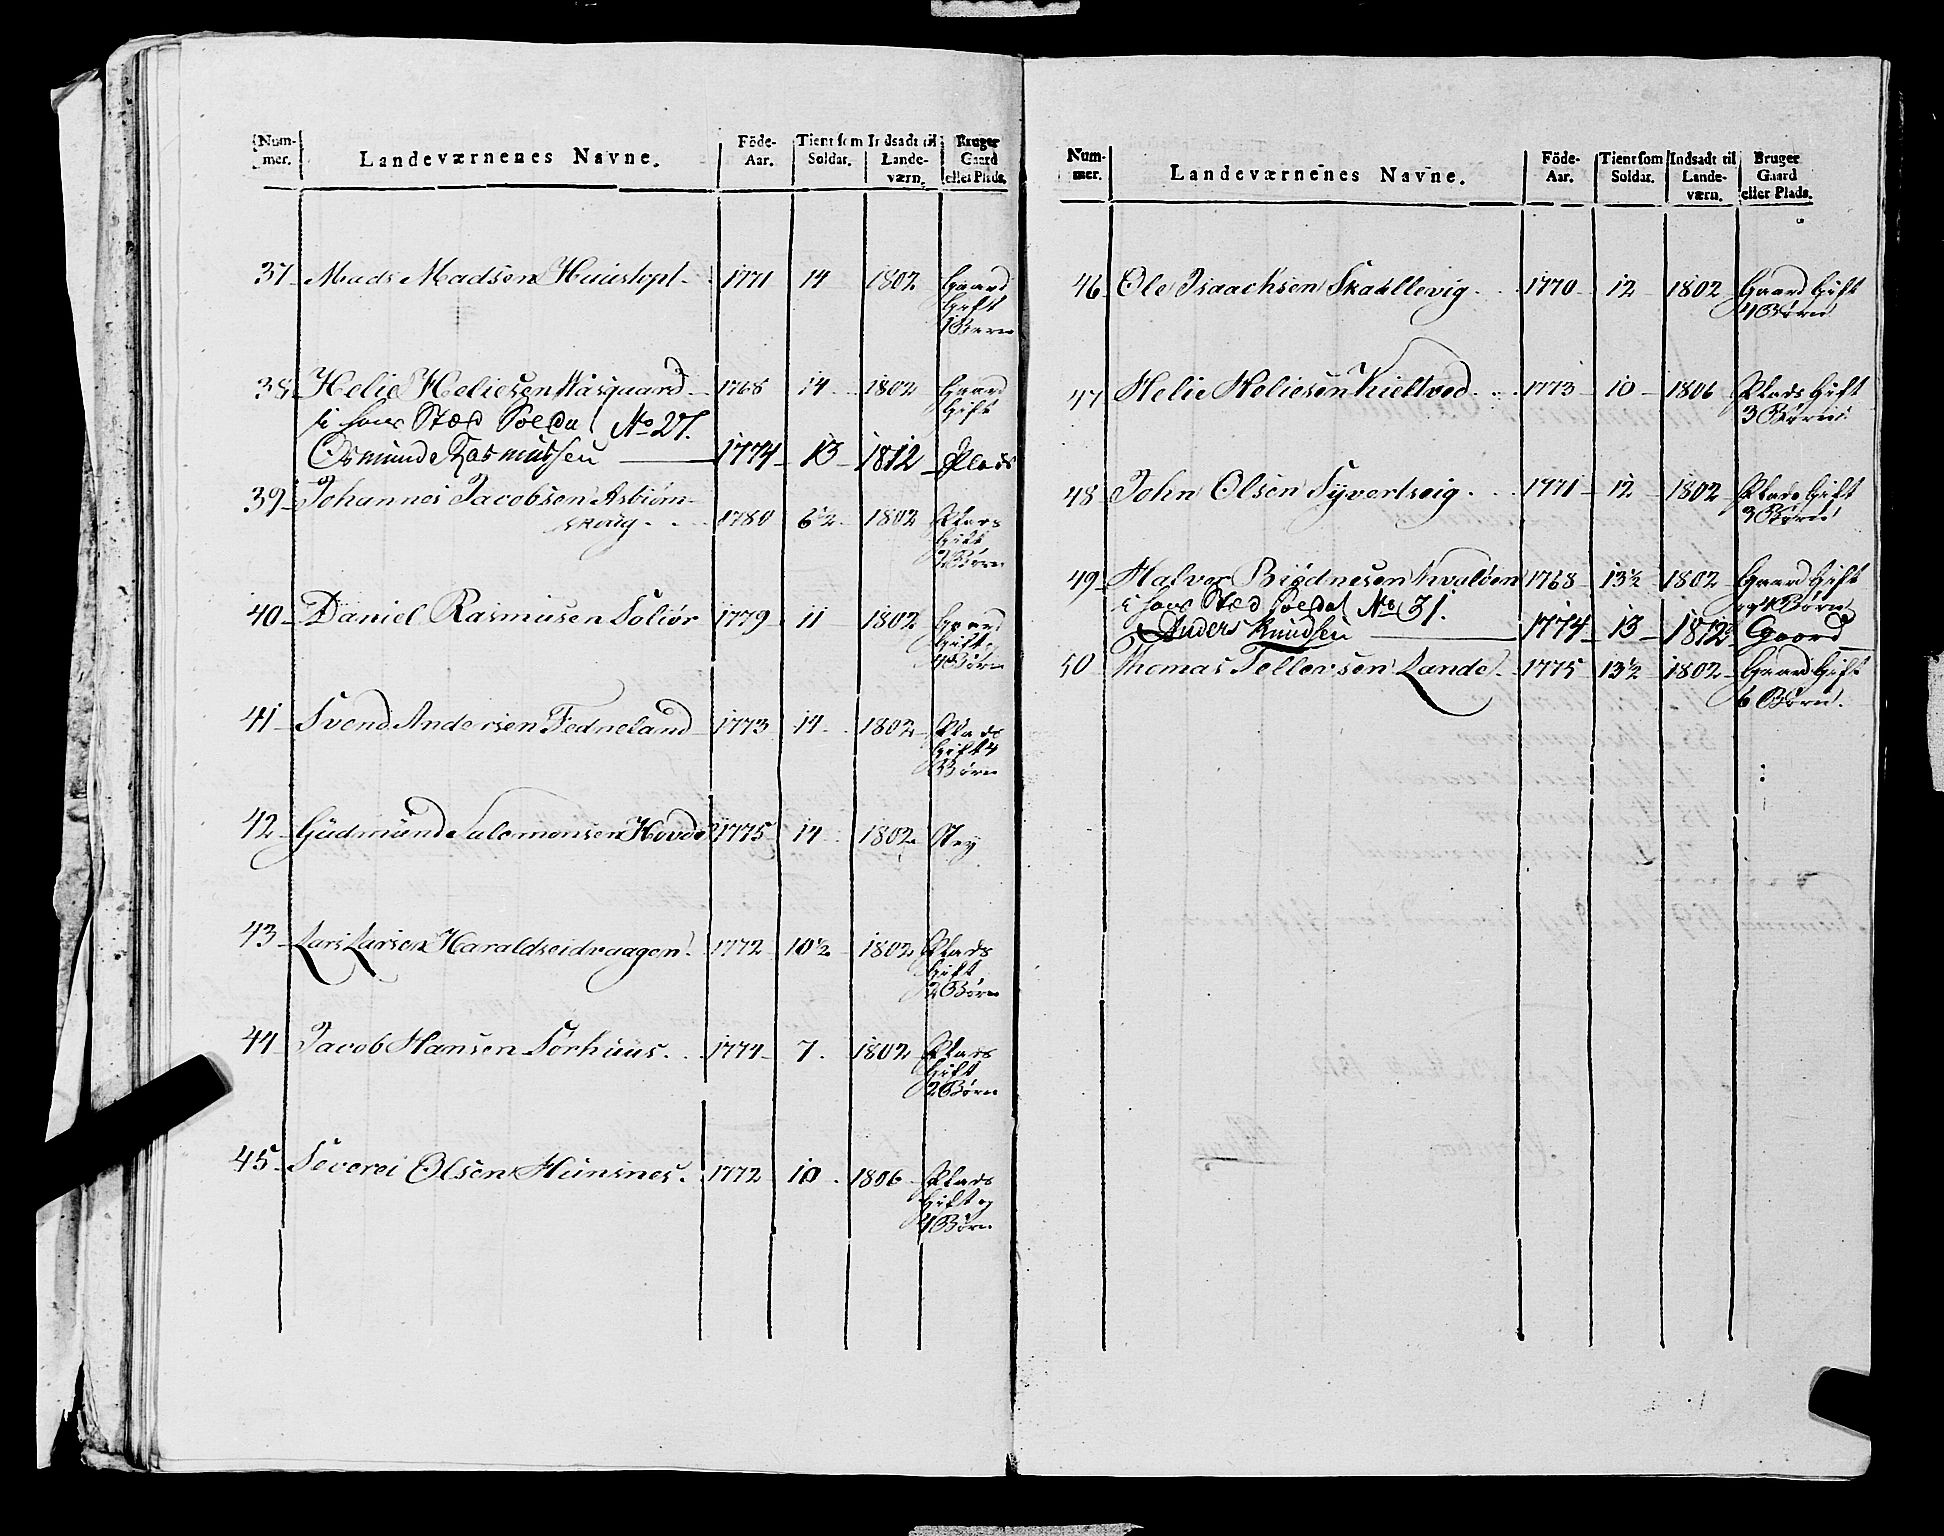 Num-
mer.
Landeværnenes Navne.
Föde-
Aar.
Tient som
Soldat.
Indsadt til
Lande-
værn.
Bruger
Gaard
eller Plads.
37 Mads Madsen 1771 14 1802 Gaard
Gift
1 Børn
38 Helie Heliesen Aasgaard 1768 14 1802 Gaard
Gift
i hans Stæd Soldat No 27.
Osmund Rasmussen 1774 13 1812 Plads
39 Johannes Jacobsen Asbiørn-
skoug 1780 6½ 1802 Plads
Gift
Børn
40 Daniel Rasmusen Soliør 1779 11 1802 Gaard
Gift
4 Børn
41 Svend Andersen Fedneland 1773 14 1802 Plads
Gift 4
Børn
42 Gudmund Salomonsen Hovde 1775 14 1802 Ney
43 Lars Larsen Haraldseidvaagen 1772 10½ 1802 Plads
Gift
2 Børn
44 Jacob Hansen Sørhuus 1774 7 1802 Plads
Gift
2 Børn
45 Severei Olsen Hunsnes 1772 10 1806 Plads
Gift og
4 Børn
Num-
mer.
Landeværnenes Navne.
Föde-
Aar.
Tient som
Soldat.
Indsadt til
Lande-
værn.
Bruger
Gaard
eller Plads.
46 Ole Isaachsen Skaellevig 1770 12 1802 Gaard Gift
4 Børn
47 Helie Heliesen Kieltved 1773 10 1806 Plads Gift
3 Børn
48 John Olsen Syvertsvig 1771 12 1802 Plads Gift
3 Børn
49 Halver Biødnesen Kvaløen 1768 13½ 1802 Gaard Gift
og 4 Børn
i hans Stæd Soldat No 31.
Anders Knudsen 1774 13 1812 Gaard
50 Thomas Tellevsen Lande 1775 13½ 1802 Gaard Gift
6 Børn.